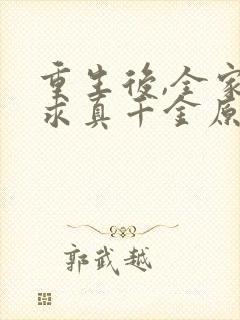 重生後,全家
求真千金原
郭武越